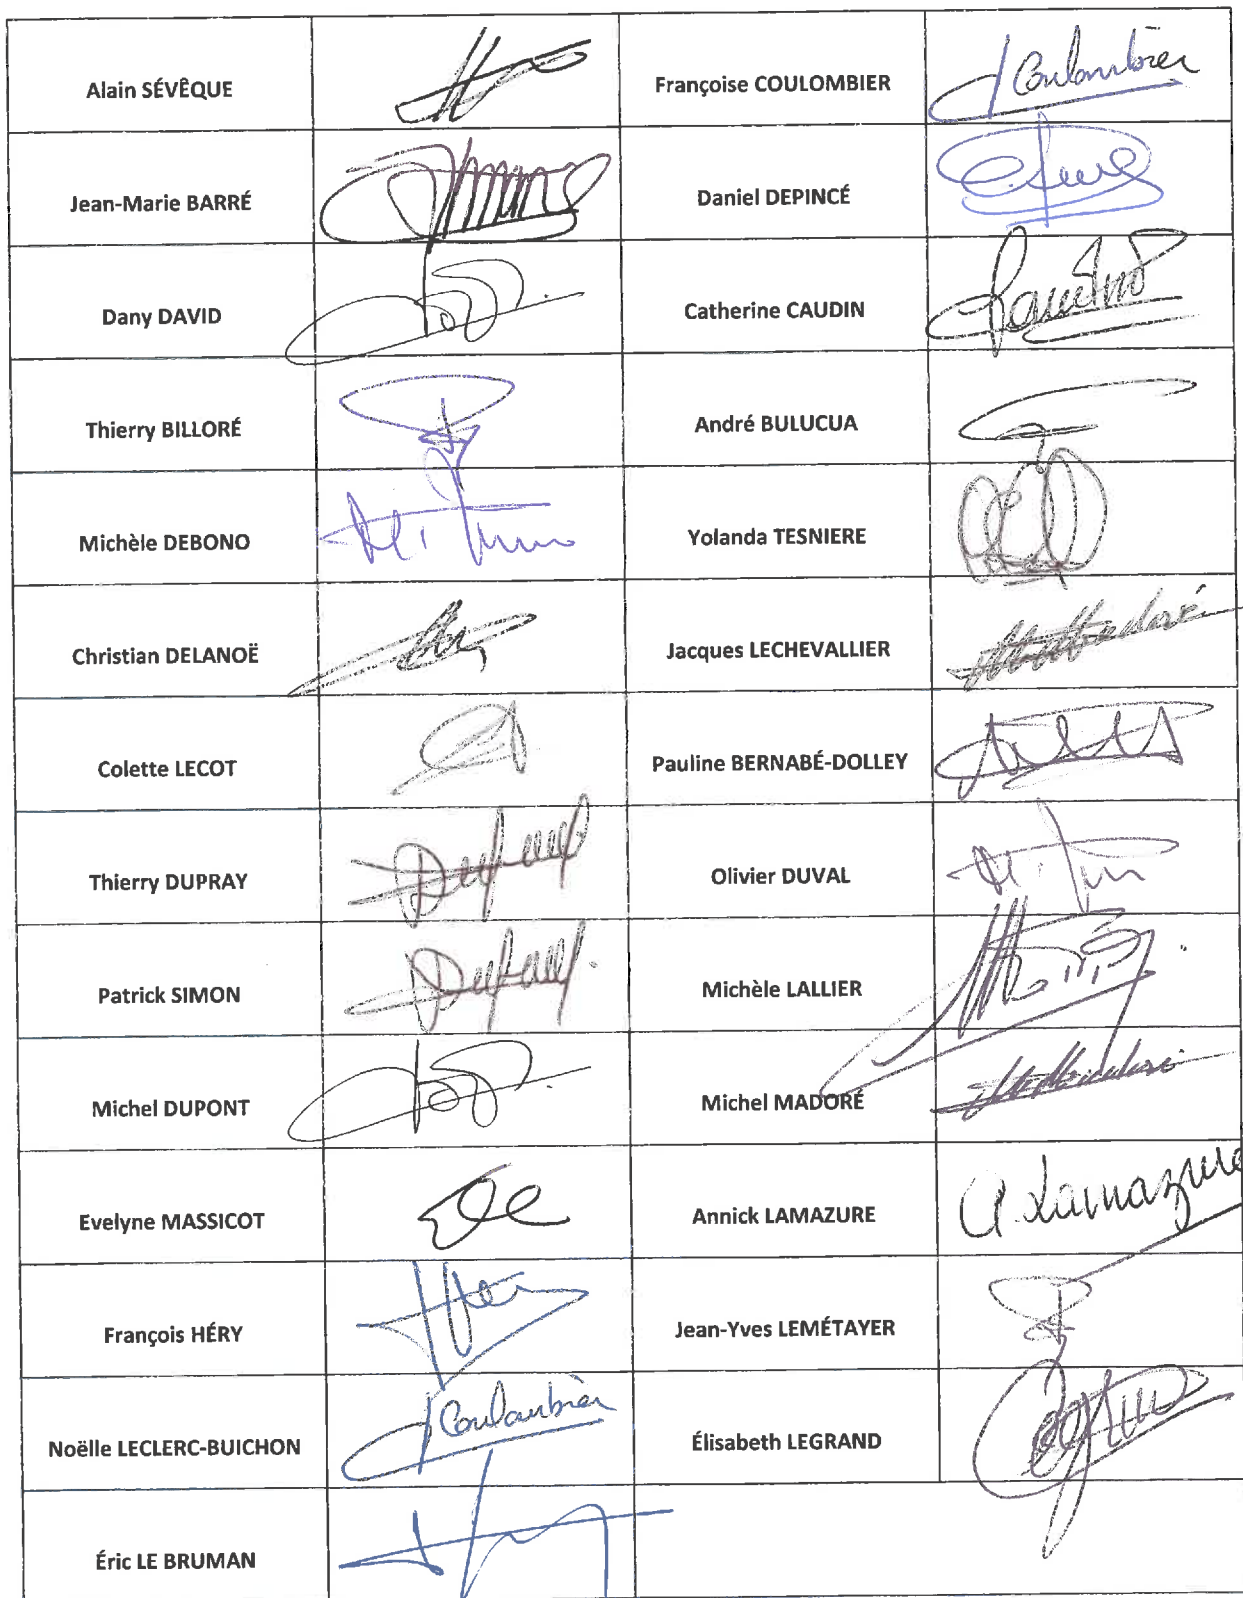 Alain SÉVÊQUE
Françoise COULOMBIER
Coulombier
Jean-Marie BARRÉ
Daniel DEPINCÉ
Dany DAVID
Catherine CAUDIN
Thierry BILLORÉ
André BULUCUA
Michèle DEBONO
Yolanda TESNIERE
Christian DELANOË
Jacques LECHEVALLIER
Colette LECOT
Pauline BERNABÉ-DOLLEY
Thierry DUPRAY
Olivier DUVAL
Patrick SIMON
Michèle LALLIER
Michel DUPONT
Michel MADORÉ
Evelyne MASSICOT
Annick LAMAZURE
A. Lamazure
François HÉRY
Jean-Yves LEMÉTAYER
Noëlle LECLERC-BUICHON
Coulombier
Élisabeth LEGRAND
Éric LE BRUMAN